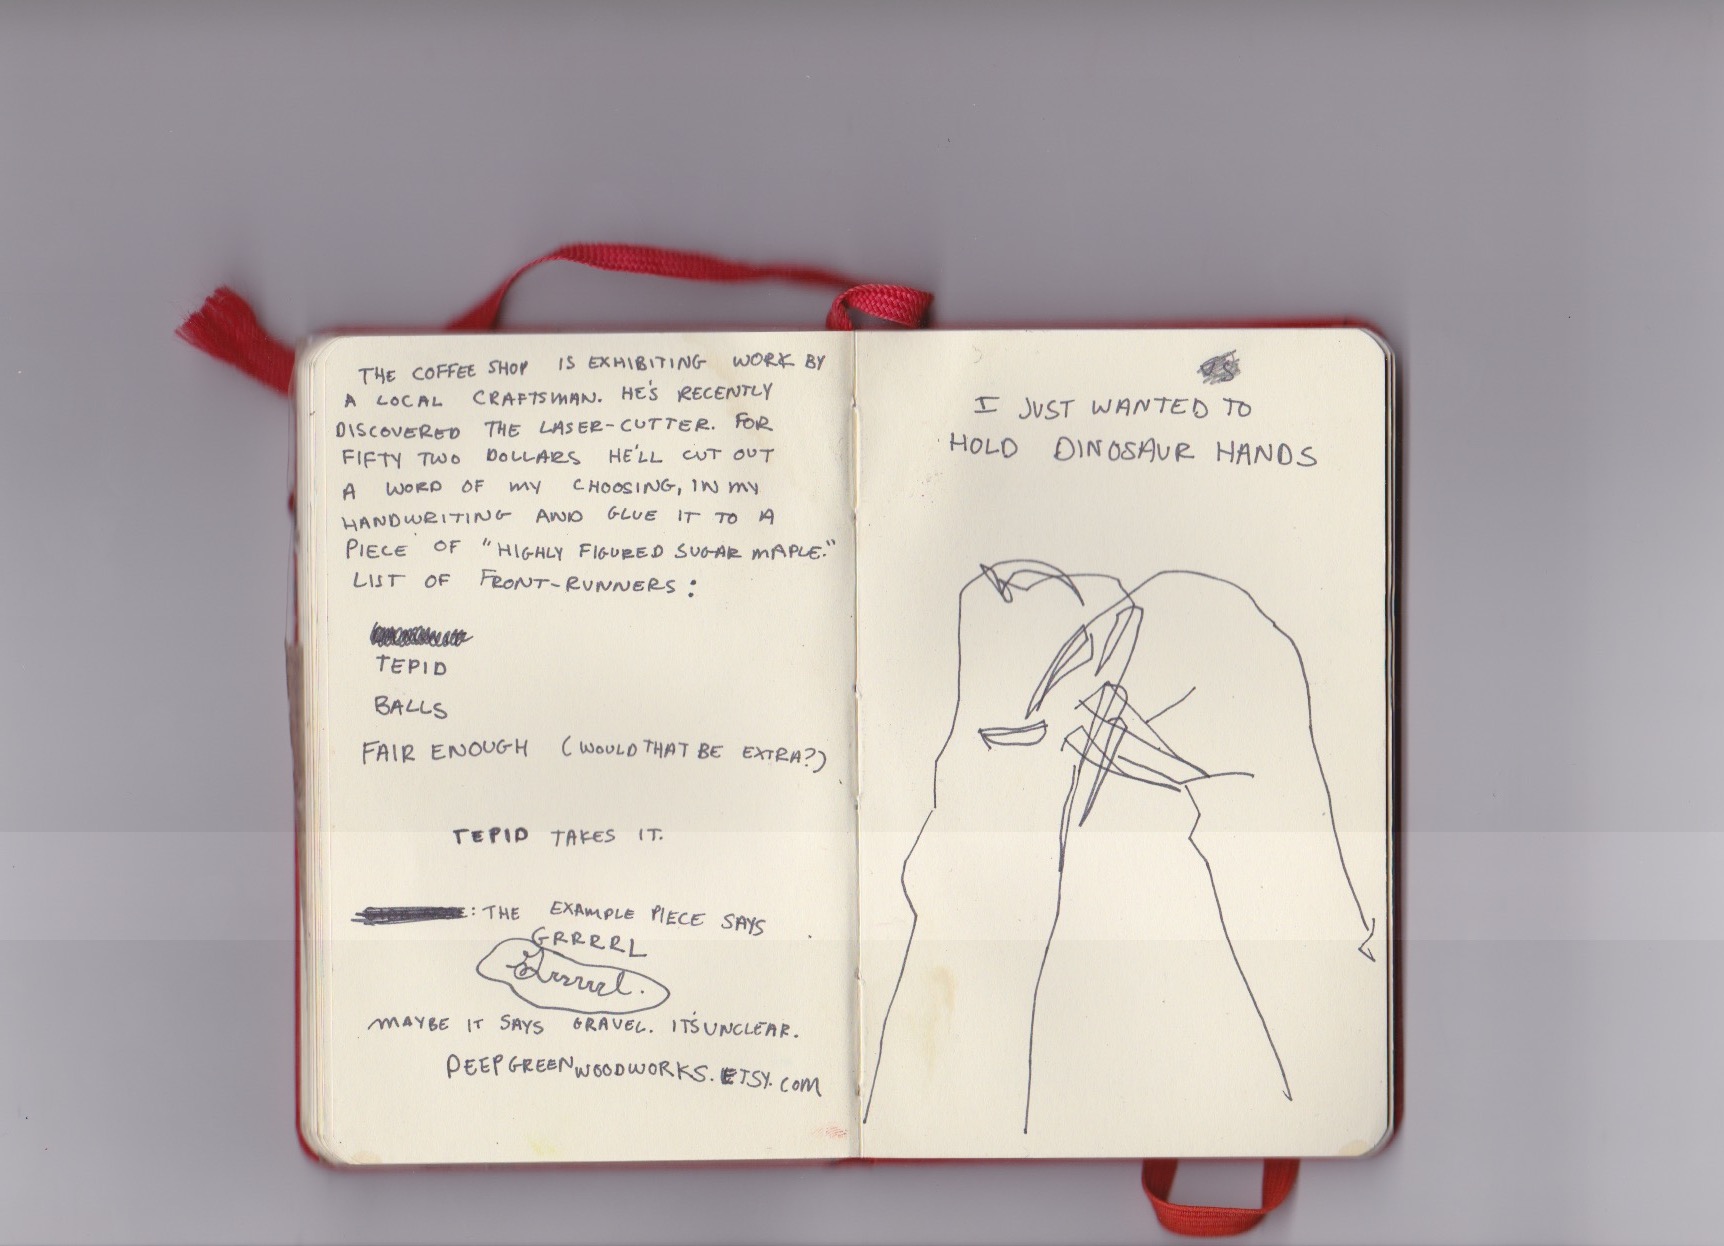 THE COFFEE SHOP IS EXHIBITING WORK BY
A LOCAL CRAFTSMAN. HE'S RECENTLY
DISCOVERED THE LASER-CUTTER. FOR
FIFTY TWO DOLLARS HE'LL CUT OUT
A WORD OF MY CHOOSING, IN MY
HANDWRITING AND GLUE IT TO A
PIECE OF "HIGHLY FIGURED SUGAR MAPLE."
LIST OF FRONT-RUNNERS:
TEPID
BALLS
FAIR ENOUGH (WOULD THAT BE EXTRA?)
TEPID TAKES IT.
: THE EXAMPLE PIECE SAYS
GRRRRL
Grrrrl.
MAYBE IT SAYS GRAVEL. IT'S UNCLEAR.
DEEPGREENWOODWORKS.ETSY.COM
I JUST WANTED TO
HOLD DINOSAUR HANDS